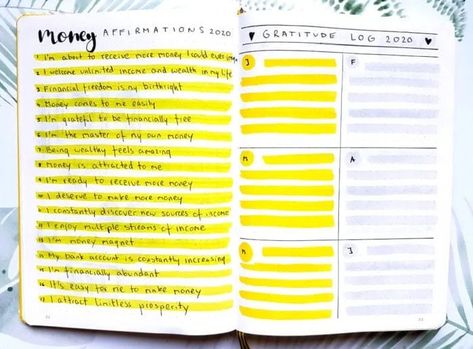 Money AFFIRMATIONS 2020
1 I'm about to receive more money I could ever
2 I welcome unlimited income and wealth in my life
3 Financial freedom is my birthright
4 Money comes to me easily
5 I'm grateful to be financially free
6 I'm the master of my own money
7 Being wealthy feels amazing
8 Money is attracted to me
9 I'm ready to receive more money
10 I deserve to make more money
11 I constantly discover new sources of income
12 I enjoy multiple streams of income
13 I'm money magnet
14 My bank account is constantly increasing
15 I'm financially abundant
16 It's easy for me to make money
17 I attract limitless prosperity
GRATITUDE LOG 2020
J
F
M
A
M
J